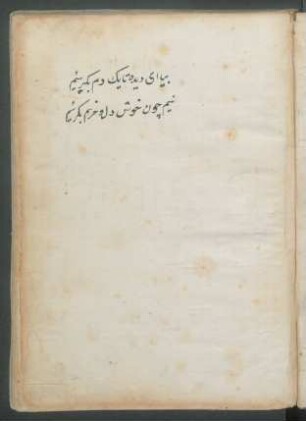 بیا ای دیده تا یک دم بگریئیم
نیم چون خوش دل و خرم بگریئا